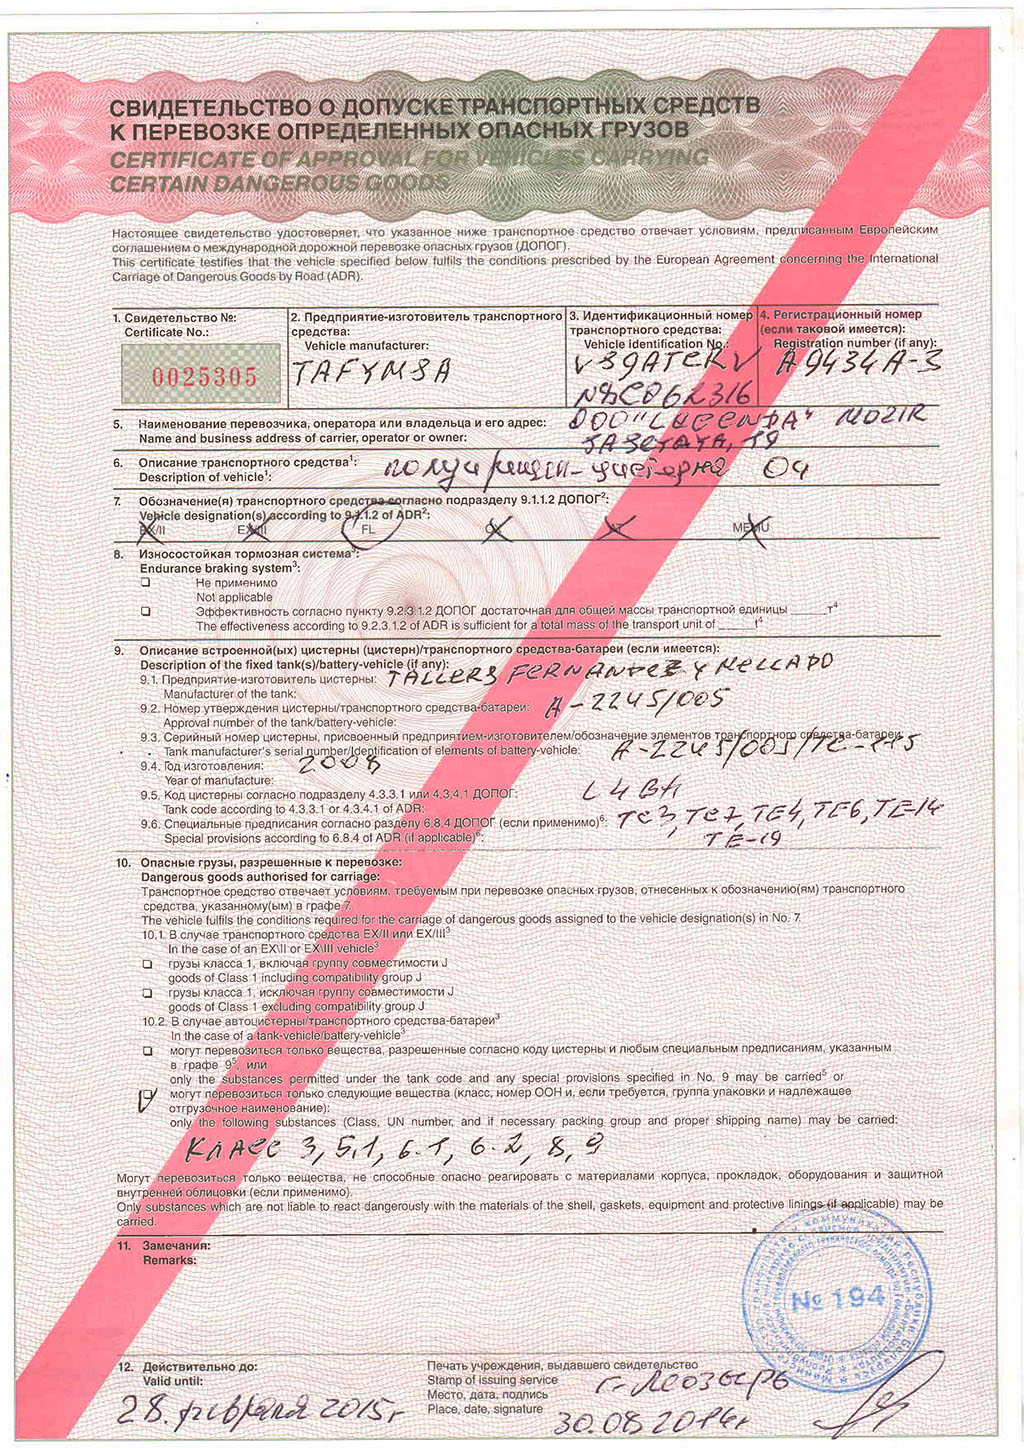 СВИДЕТЕЛЬСТВО О ДОПУСКЕ ТРАНСПОРТНЫХ СРЕДСТВ
К ПЕРЕВОЗКЕ ОПРЕДЕЛЕННЫХ ОПАСНЫХ ГРУЗОВ
CERTIFICATE OF APPROVAL FOR VEHICLES CARRYING
CERTAIN DANGEROUS GOODS
Настоящее свидетельство удостоверяет, что указанное ниже транспортное средство отвечает условиям, предписанным Европейским
соглашением о международной дорожной перевозке опасных грузов (ДОПОГ).
This certificate testifies that the vehicle specified below fulfils the conditions prescribed by the European Agreement concerning the International
Carriage of Dangerous Goods by Road (ADR).
1. Свидетельство №:
Certificate No.:
0025305
2. Предприятие-изготовитель транспортного
средства:
Vehicle manufacturer:
TAFYMSA
3. Идентификационный номер
транспортного средства:
Vehicle identification No.:
4. Регистрационный номер
(если таковой имеется):
Registration number (if any):
A 9434 A-3
5. Наименование перевозчика, оператора или владельца и его адрес:
Name and business address of carrier, operator or owner:
MOZIR
6. Описание транспортного средства¹:
Description of vehicle¹:
полуприцеп-цистерна O4
7. Обозначение(я) транспортного средства согласно подразделу 9.1.1.2 ДОПОГ²:
Vehicle designation(s) according to 9.1.1.2 of ADR²:
EX/II EX/III FL OX AT MEMU
8. Износостойкая тормозная система³:
Endurance braking system³:
Не применимо
Not applicable
Эффективность согласно пункту 9.2.3.1.2 ДОПОГ достаточная для общей массы транспортной единицы ______т⁴
The effectiveness according to 9.2.3.1.2 of ADR is sufficient for a total mass of the transport unit of ______t⁴
9. Описание встроенной(ых) цистерны (цистерн)/транспортного средства-батареи (если имеется):
Description of the fixed tank(s)/battery-vehicle (if any):
9.1. Предприятие-изготовитель цистерны: TALLERS FERNANDEZ Y MELLADO
Manufacturer of the tank:
9.2. Номер утверждения цистерны/транспортного средства-батареи: A-2245/005
Approval number of the tank/battery-vehicle:
9.3. Серийный номер цистерны, присвоенный предприятием-изготовителем/обозначение элементов транспортного средства-батареи:
Tank manufacturer's serial number/Identification of elements of battery-vehicle: A-2245/005/TC-115
9.4. Год изготовления: 2008
Year of manufacture:
9.5. Код цистерны согласно подразделу 4.3.3.1 или 4.3.4.1 ДОПОГ: L4BH
Tank code according to 4.3.3.1 or 4.3.4.1 of ADR:
9.6. Специальные предписания согласно разделу 6.8.4 ДОПОГ (если применимо)⁶: TC3, TC7, TE4, TE6, TE-14
Special provisions according to 6.8.4 of ADR (if applicable)⁶: TE-19
10. Опасные грузы, разрешенные к перевозке:
Dangerous goods authorised for carriage:
Транспортное средство отвечает условиям, требуемым при перевозке опасных грузов, отнесенных к обозначению(ям) транспортного
средства, указанному(ым) в графе 7.
The vehicle fulfils the conditions required for the carriage of dangerous goods assigned to the vehicle designation(s) in No. 7.
10.1. В случае транспортного средства EX/II или EX/III³
In the case of an EX\II or EX\III vehicle³
грузы класса 1, включая группу совместимости J
goods of Class 1 including compatibility group J
грузы класса 1, исключая группу совместимости J
goods of Class 1 excluding compatibility group J
10.2. В случае автоцистерны/транспортного средства-батареи³
In the case of a tank-vehicle/battery-vehicle³
могут перевозиться только вещества, разрешенные согласно коду цистерны и любым специальным предписаниям, указанным
в графе 9⁵, или
only the substances permitted under the tank code and any special provisions specified in No. 9 may be carried⁵ or
могут перевозиться только следующие вещества (класс, номер ООН и, если требуется, группа упаковки и надлежащее
отгрузочное наименование):
only the following substances (Class, UN number, and if necessary packing group and proper shipping name) may be carried:
Класс 3, 5.1, 6.1, 6.2, 8, 9
Могут перевозиться только вещества, не способные опасно реагировать с материалами корпуса, прокладок, оборудования и защитной
внутренней облицовки (если применимо).
Only substances which are not liable to react dangerously with the materials of the shell, gaskets, equipment and protective linings (if applicable) may be
carried.
11. Замечания:
Remarks:
№ 194
12. Действительно до:
Valid until:
28. февраля 2015г
Печать учреждения, выдавшего свидетельство
Stamp of issuing service
Место, дата, подпись
Place, date, signature
г. Мозырь
30.08.2014г